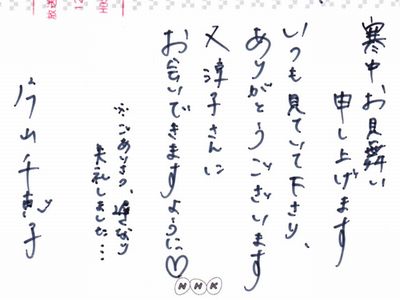 寒中お見舞い
申し上げます
いつも見ていて下さり、
ありがとうございます
又淳子さんに
お会いできますように♡
※ごあいさつ、遅くなり
失礼しました…
片山千恵子
NHK